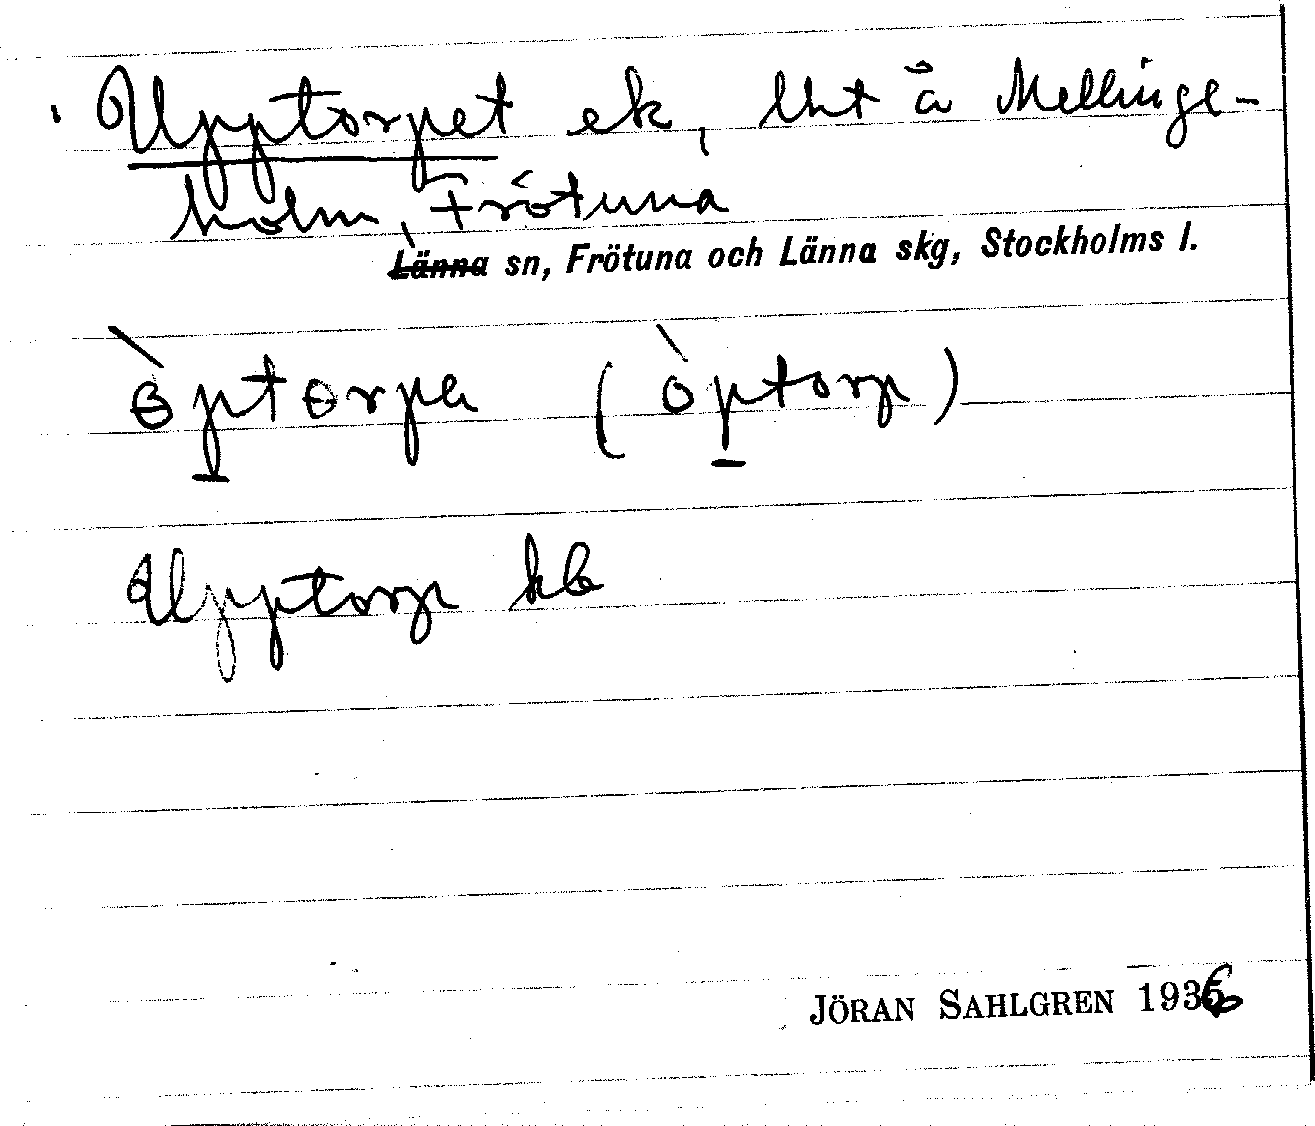 Upptorpet ek, lht å Mellinge-
holm, Frötuna
Länna sn, Frötuna och Länna skg, Stockholms l.
ɵ̀p̠tɵrpa (òp̠torp)
Upptorp kb
JÖRAN SAHLGREN 1936